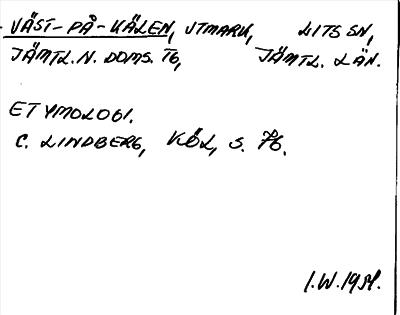 - VÄST-PÅ-KÄLEN, UTMARK, LITS SN,
JÄMTL. N. DOMS. TG, JÄMTL. LÄN.
ETYMOLOGI.
C. LINDBERG, KÖL, S. 76.
I.W. 1951.